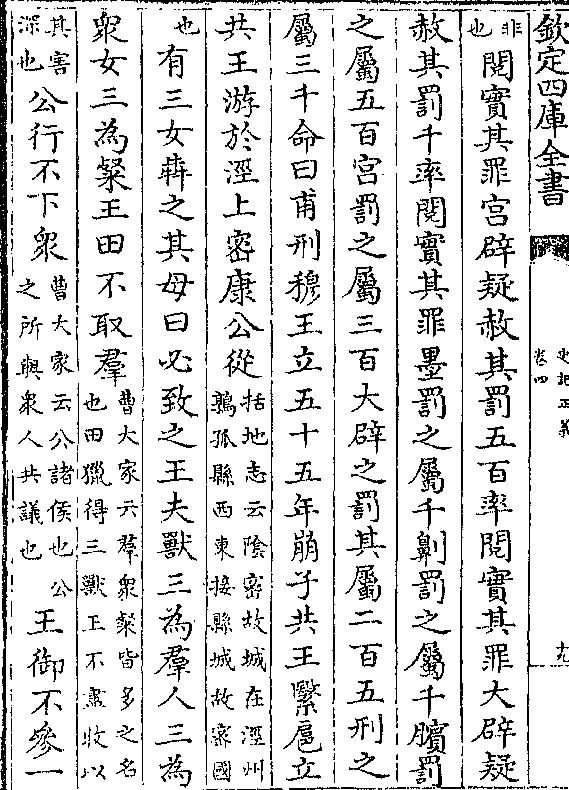 欽定四庫全書
史記正義
卷四
十九
非
也
閱實其罪宮辟疑赦其罰五百率閱實其罪大辟疑
赦其罰千率閱實其罪墨罰之屬千劓罰之屬千臏罰
之屬五百宮罰之屬三百大辟之罰其屬二百五刑之
屬三千命曰甫刑穆王立五十五年崩子共王繄扈立
共王游於涇上密康公從
括地志云陰密故城在涇州
鶉孤縣西東接縣城故密國
也
有三女犇之其母曰必致之王夫獸三為羣人三為
衆女三為粲王田不取羣
曹大家云羣衆粲皆多之名
也田獵得三獸王不盡收以
其害
深也
公行不下衆
曹大家云公諸侯也公
之所與衆人共議也
王御不參一